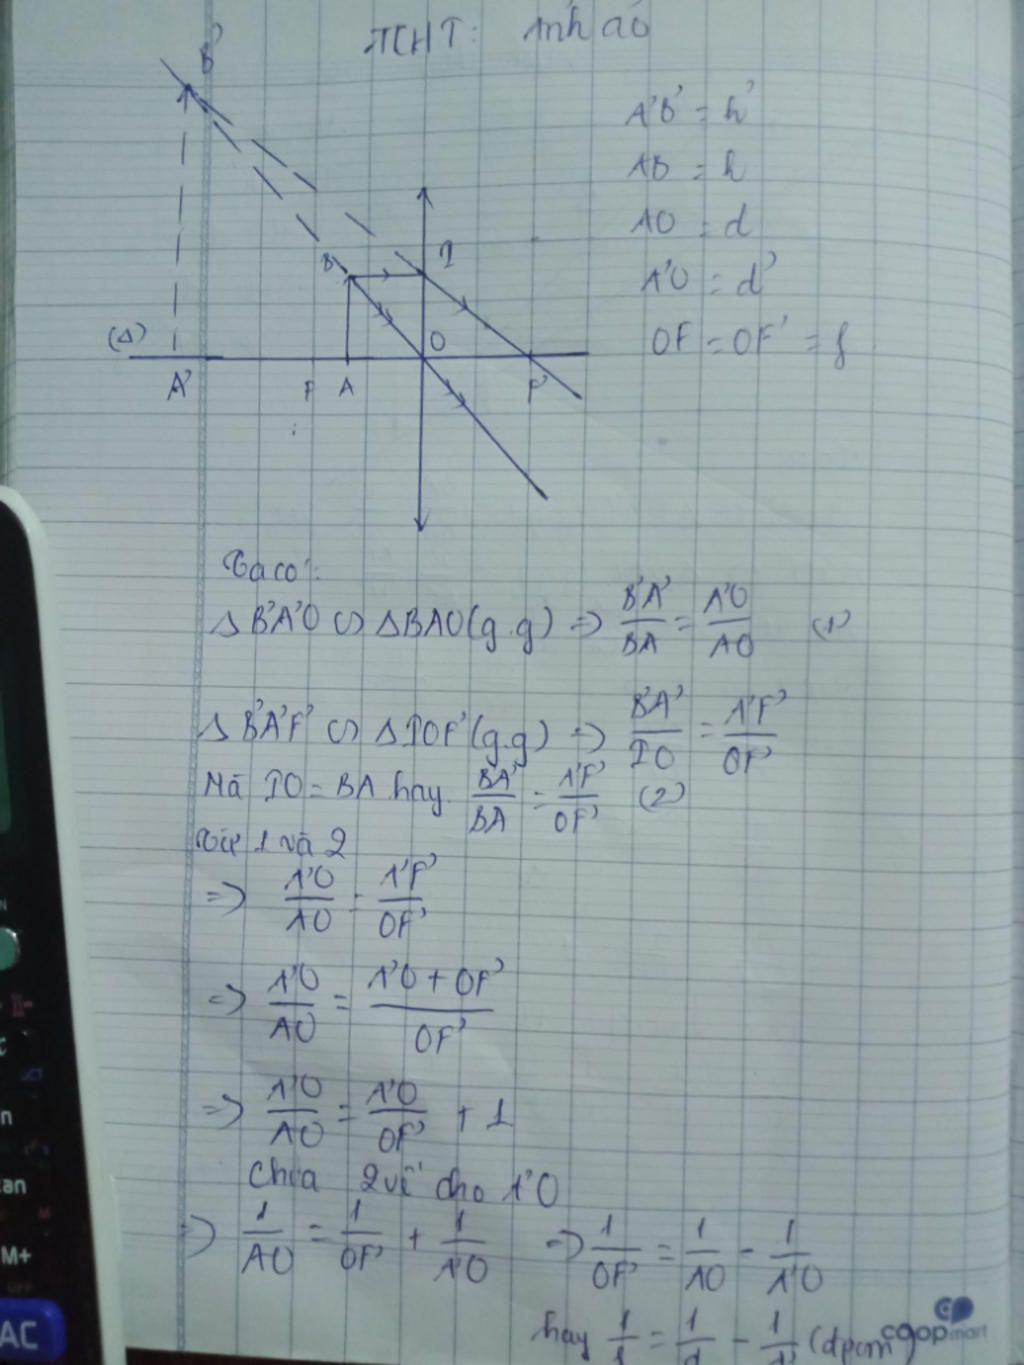 TKHT: Ảnh ảo
B'
A'B' = h'
AB = h
AO = d
A'O = d'
OF = OF' = f
B
I
(Δ)
O
A'
F
A
F'
Ta có:
Δ B'A'O ∽ Δ BAO (g.g) => B'A'/BA = A'O/AO (1)
Δ B'A'F' ∽ Δ IOF' (g.g) => B'A'/IO = A'F'/OF'
Mà IO = BA hay BA'/BA = A'F'/OF' (2)
Từ 1 và 2
=> A'O/AO = A'F'/OF'
=> A'O/AO = A'O + OF'/OF'
=> A'O/AO = A'O/OF' + 1
Chia 2 vế cho A'O
=> 1/AO = 1/OF' + 1/A'O => 1/OF' = 1/AO - 1/A'O
hay 1/f = 1/d - 1/d' (đpcm)
co.opmart
M+
AC